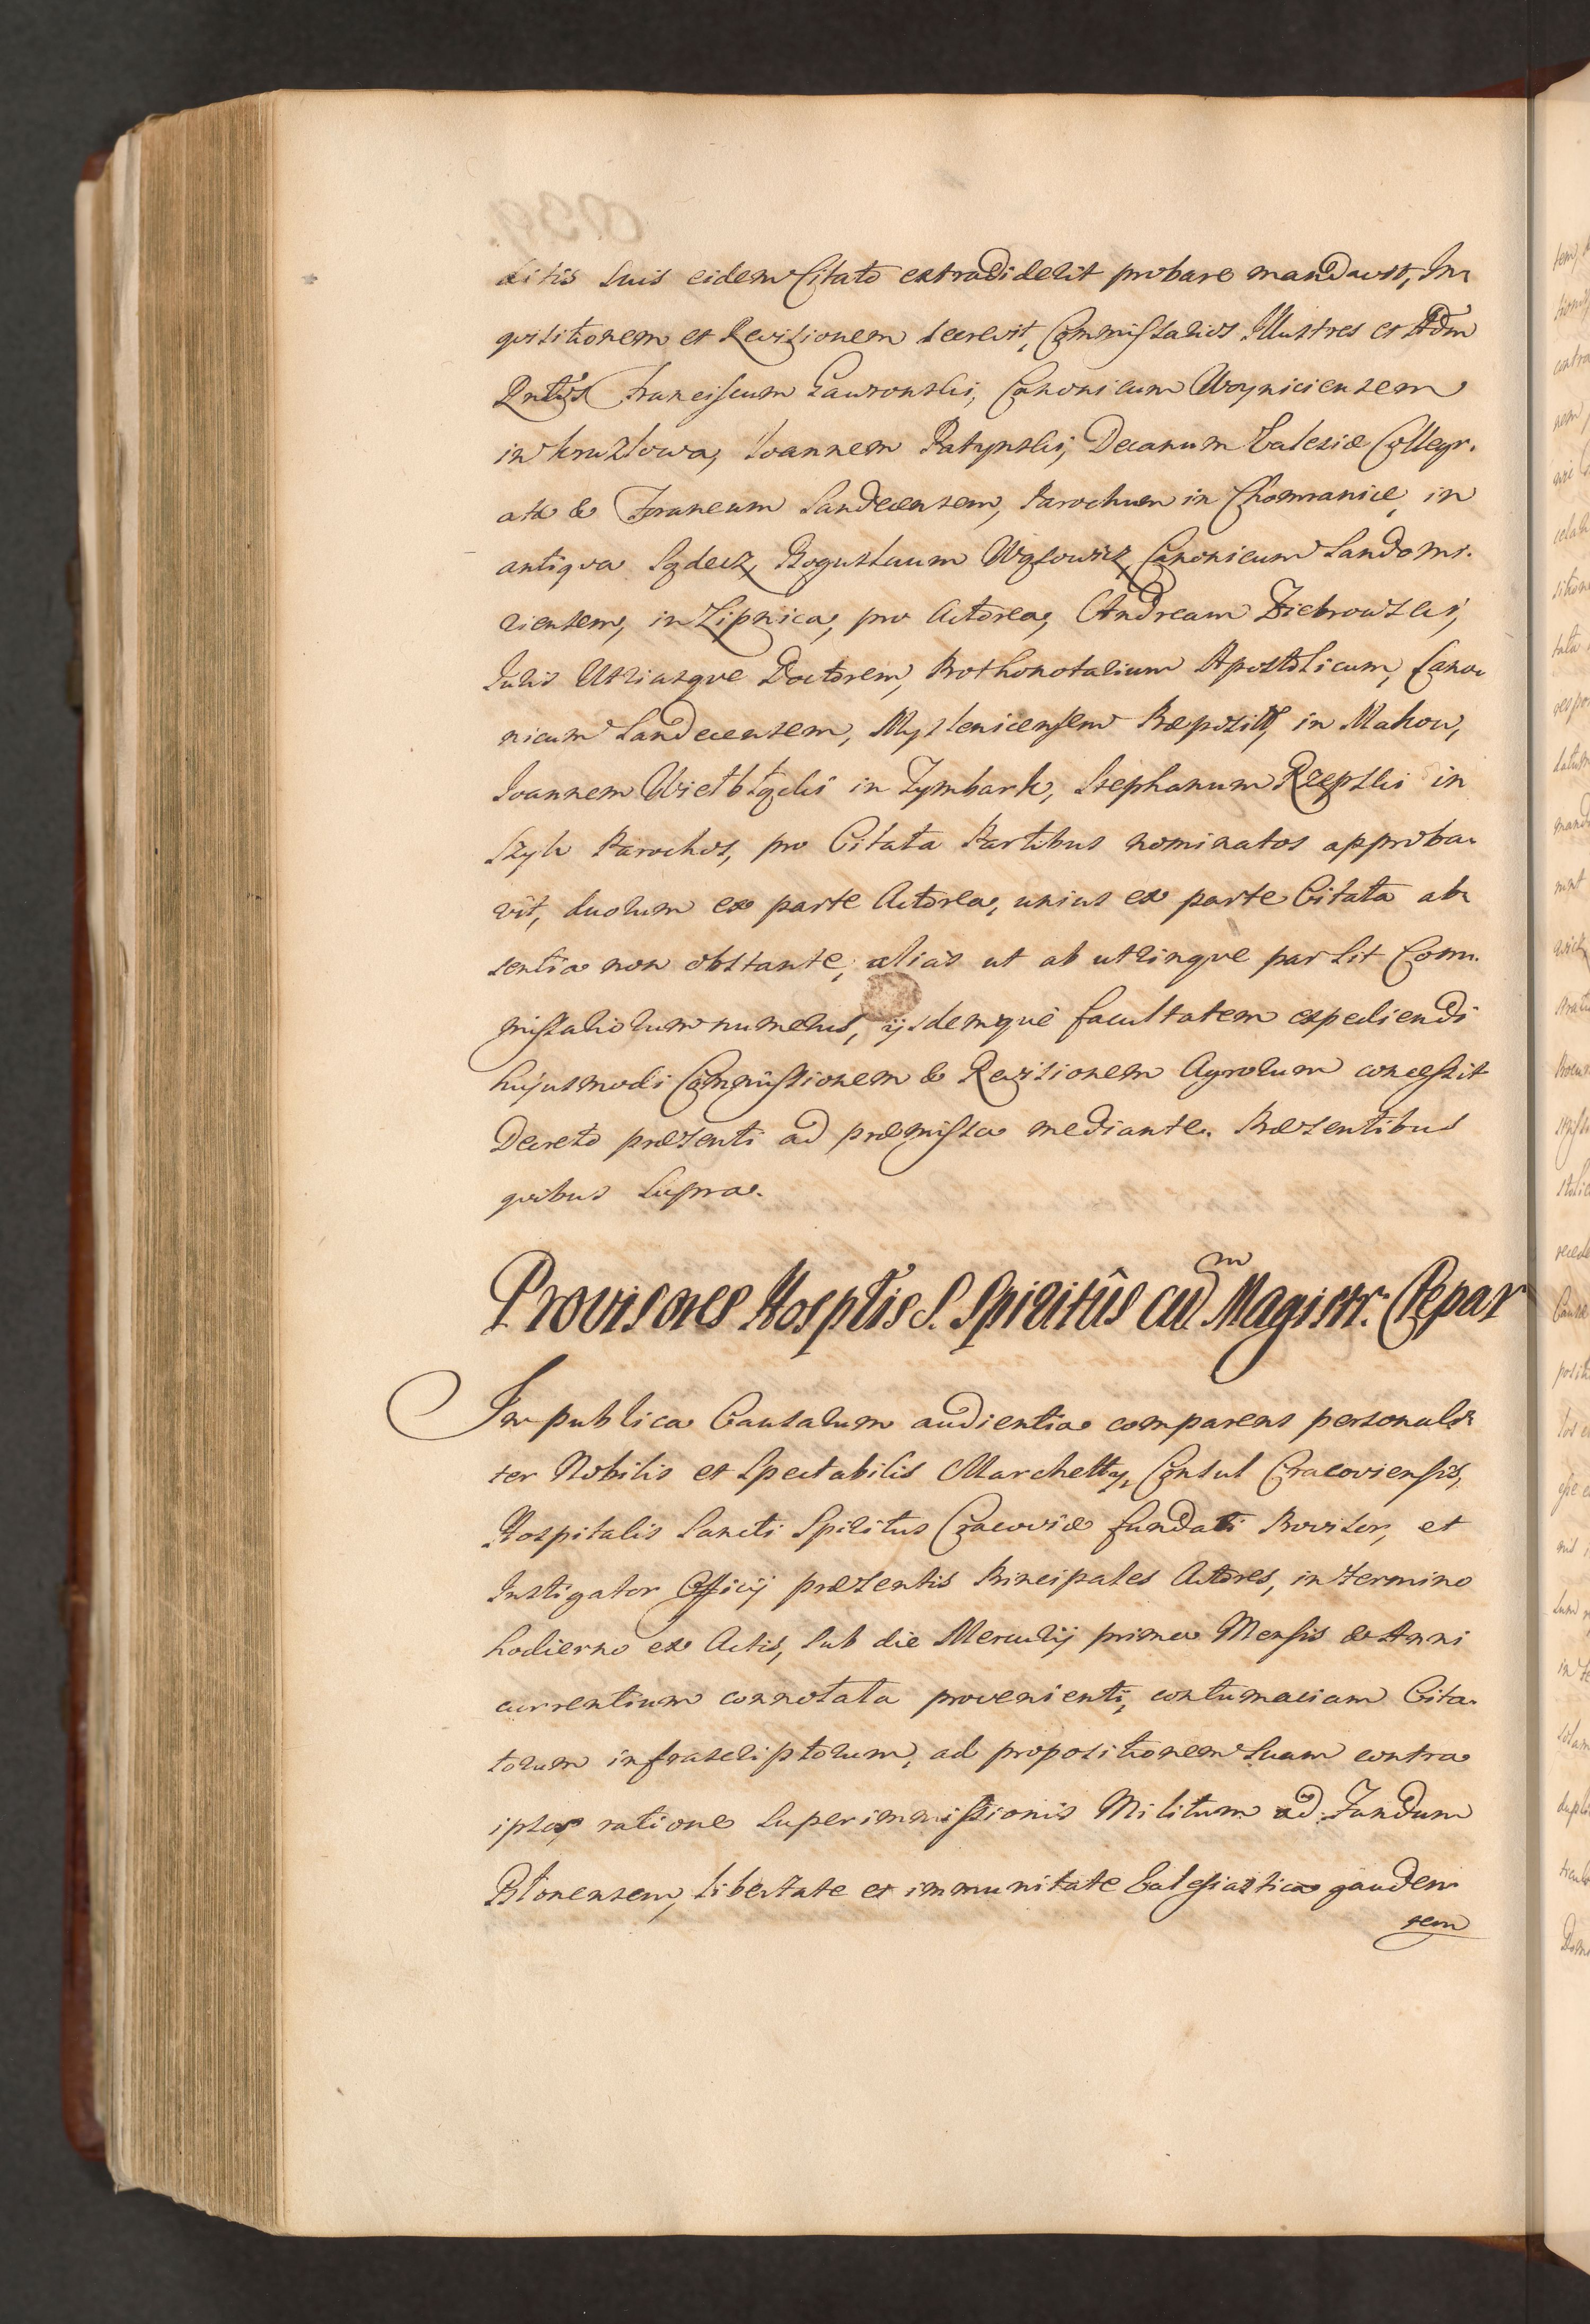 ditis suis eidem Citato extradiderit probare mandavit, In
qvisitionem et Revisionem decrevit, Commissarios Illustres et Adm
Rndos Franciscum Gawronski, Canonicum Woyniciensem
in Kruzlowa, Joannem Ratynski, Decanum Ecclesiæ Collegi
atæ & Foraneum Sandecensem, Parochum in Chomranice, in
antiqva Sądecz, Boguslaum Wąsowicz, Canonicum Sandomi
riensem, in Lipnica, pro Actorea, Andream Ziebrowski,
Juris Utriusqve Doctorem, Prothonotarium Apostolicum, Cano
nicum Sandecensem, Myslenicensem Præposit, in Makow,
Joannem Wielbłądzki in Zymbark, Stephanum Rzepski in
Szyk Parochos, pro Citata Partibus nominatos approba
vit, duorum ex parte Actorea, unius ex parte Citata ab
sentia non obstante, alias ut ab utrinqve par sit Com
missariorum numerus, ijsdemqve facultatem expediendi
hujusmodi Commissionem & Revisionem Agrorum concessit
Decreto præsenti ad præmissa mediante. Præsentibus
qvibus supra.
Provisores Hosptlis S. Spiritûs cum Magistr. Cepar
In publica Causarum audientia comparens personali
ter Nobilis et Spectabilis Marchetty, Consul Cracoviensis,
Hospitalis Sancti Spiritus Cracoviæ fundati Provisor, et
Instigator Officij præsentis Principales Actores, in termino
hodierno ex Actis, sub die Mercurij prima Mensis & Anni
currentium connotata provenienti, contumaciam Cita
torum infrascriptorum, ad propositionem suam contra
ipsos ratione superimmissionis Militum ad Fundum
Blonensem, libertate et immunitate Ecclesiastica gauden
tem